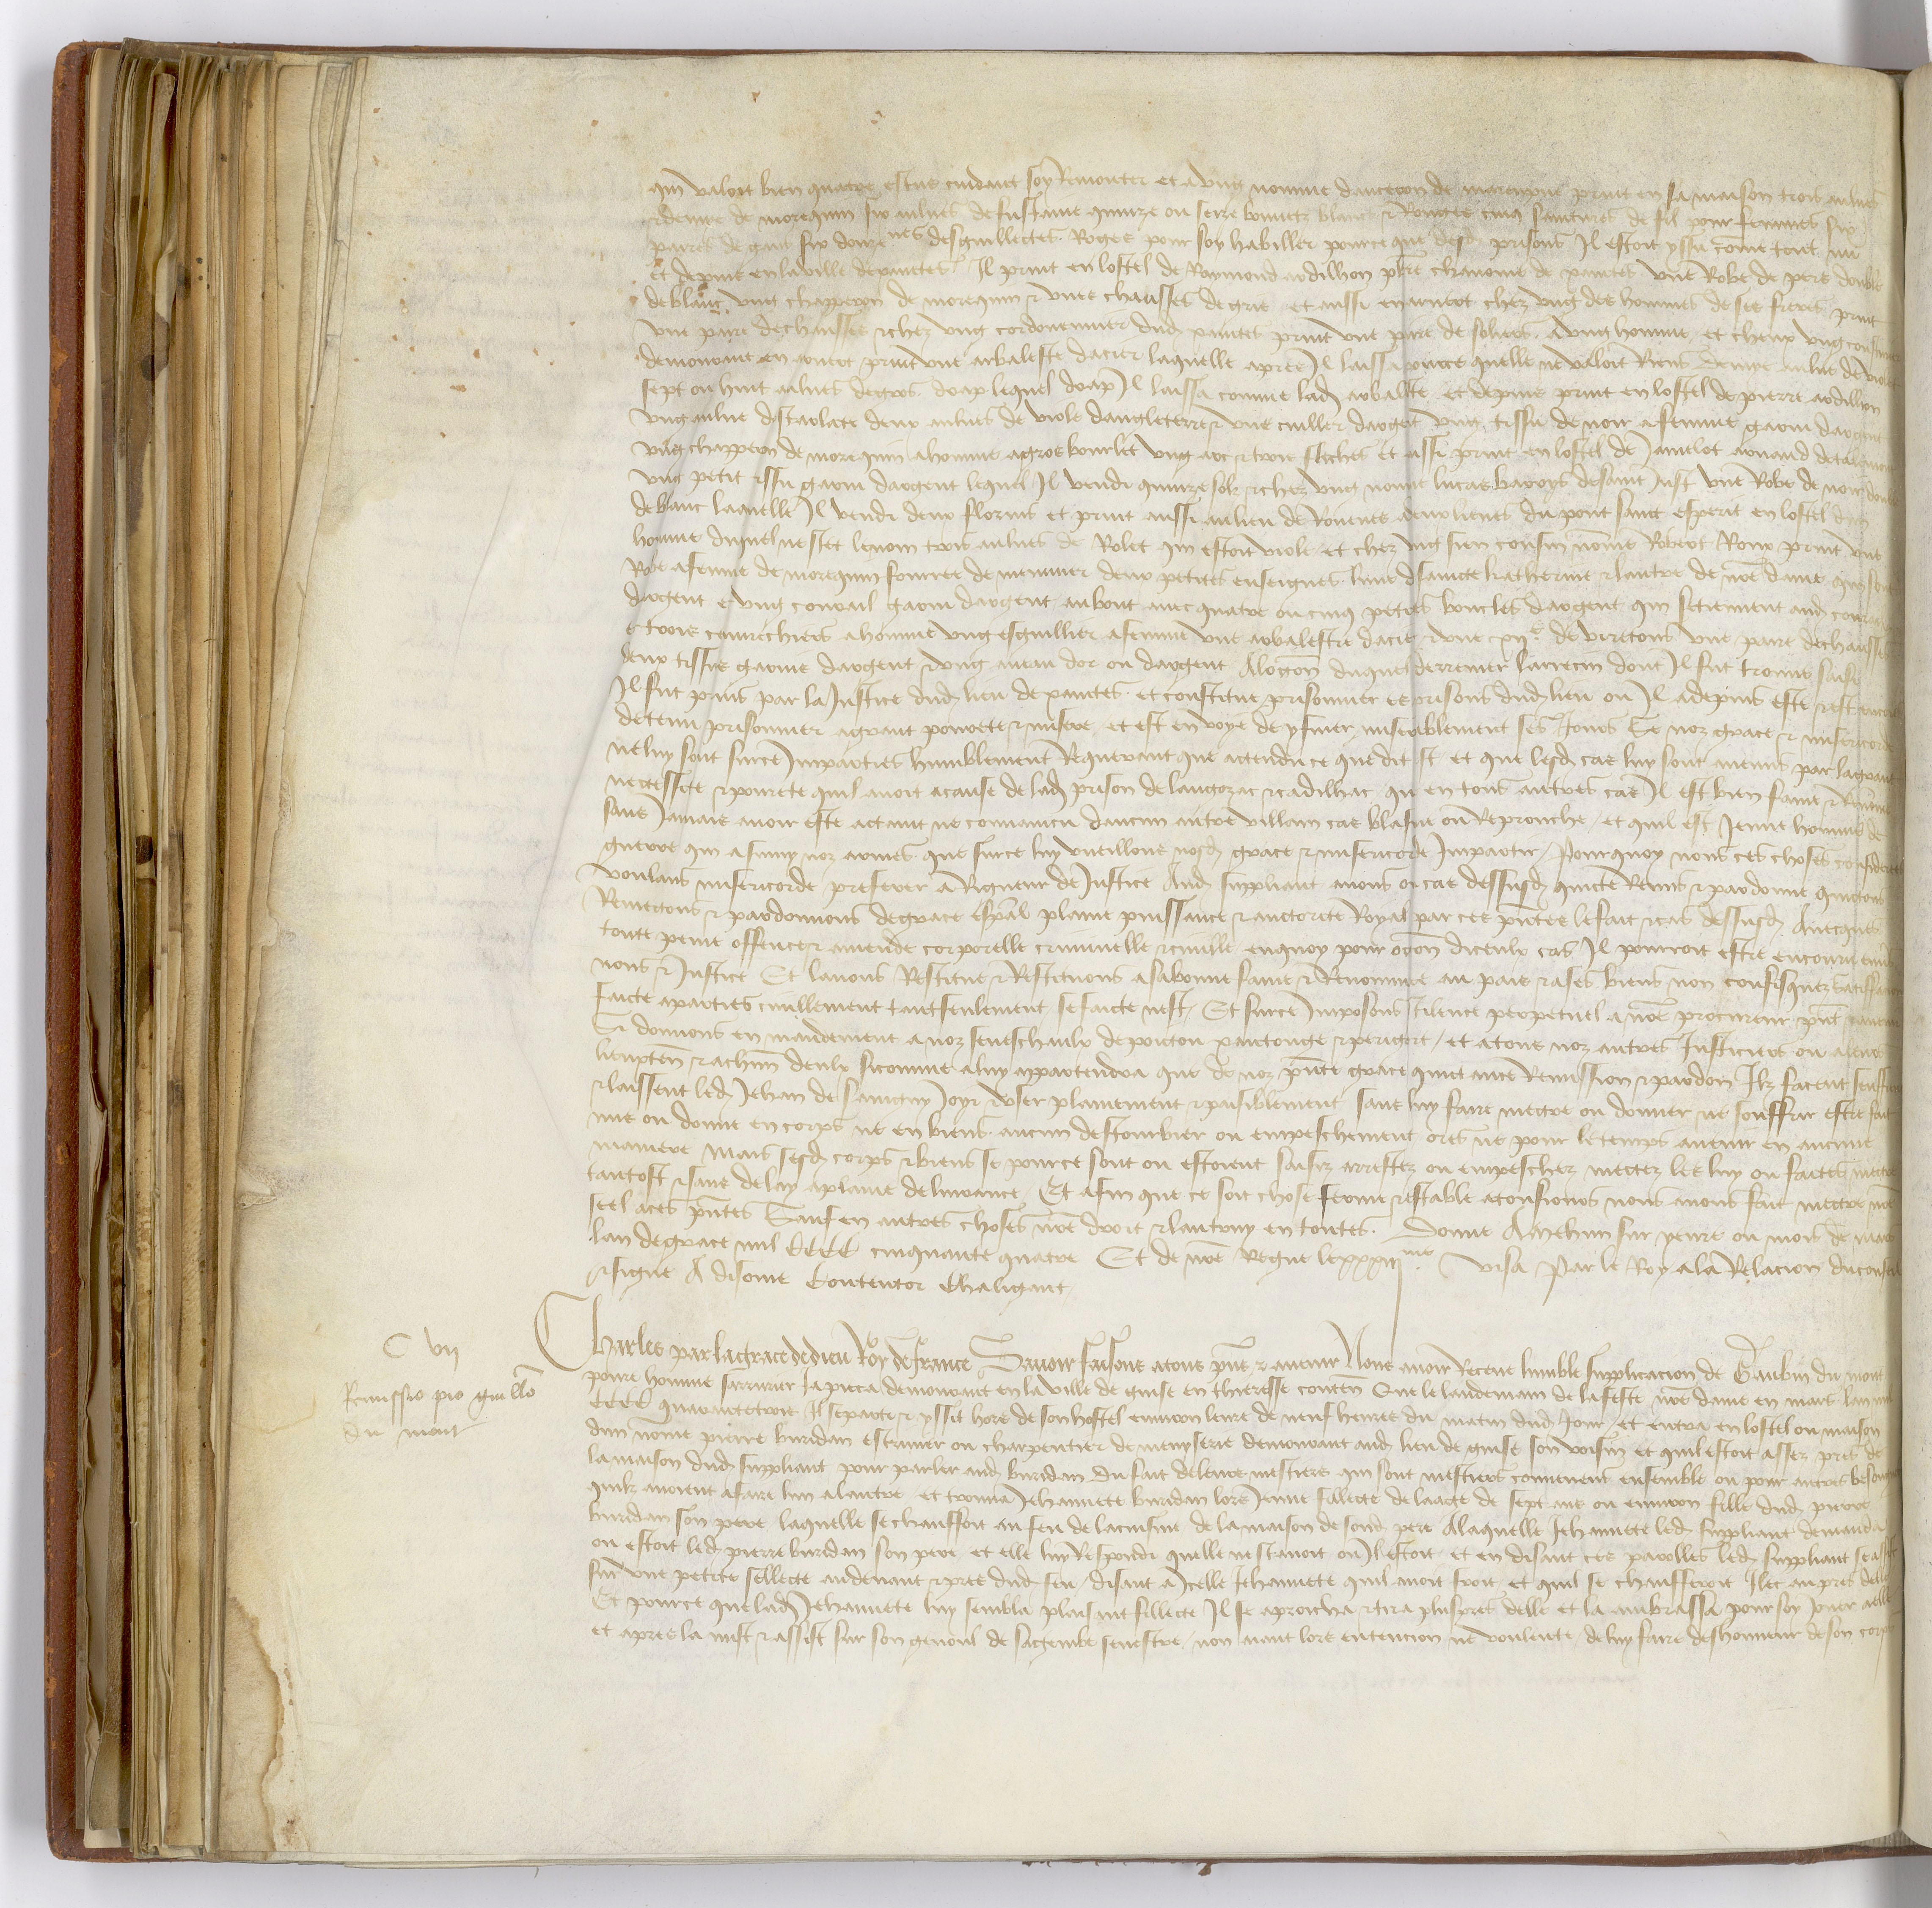 qui valoit bien quatre escus cuidant soy Remonter et a ung nomme de print en sa maison trois aulnes
& demie de morequin six aulnes de fustaine quinze ou seize bonnetz blans & Rouges cinq saintures de fil pour femmes six
paires de gans six douzenes desguillectes Roges pour soy habiller pource que desd prisons Il estoit yssu come tout nu
Et depuis en la ville de xanctes Il print en lostel de Raymond ardillon pbre chanoine de xanctes une Robe de pers double
de blanc ung chapperon de morequin & unes chausses de gris et aussi en chez ung des hommes de ses freres print
une paire de chausses & chez ung cordouennier dud xanctes print une paire de soliers a ung homme et cheux ung
demourant en print une arbaleste dacier laquelle apres Il laissa pource quelle ne valoit Riens demye aulne de violet
sept ou huit aulnes de gros drap lequel drap Il laissa comme lad arbaleste et depuis print en lostel de pierre ardillon
ung aulne descarlate deux aulnes de viole dangleterre & une cuiller dargent ung tissu de noir a femme garni dargent
ung chapperon de morequin a homme a gros bourlet ung arc & trois fleches et assi print en lostel de Jamelot
ung petit tissu garni dargent lequel Il vendi quinze solz & chez ung nomme lucas de saint Just une Robe de noir double
de blanc laquelle Il vendi deux florins et print aussi au lieu de a deux lieues du pont sainct esperit en lostel dun
homme duquel ne scet le nom trois aulnes de Rolet qui estoit viole et chez ung sien cousin nomme Robert Roux print une
Robe a femme de morequin fourree de menuver deux petites enseignes lune de saincte katherine & lautre de nre dame qui sont
dargent & ung garni dargent au bout avec quatre ou cinq petites boucles dargent qui se tiennent aud
& trois couvrechiefs a homme ung esguillier a femme une arbalestre dacier & une xiie de viretons une paire de chausses
deux tissus garnis dargent & ung aneau dor ou dargent A locon duquel derrenier larrecin dont Il fut trouve saisi
Il fut prins par la Justice dud lieu de xanctes et constitue prisonnier es prisons dud lieu ou Il a depuis este & est encores
detenu prisonnier a grant povrete & misere et est en voye de y finer miserablement ses Jours Se noz grace & misericorde
ne luy sont sur ce Imparties humblement Requerant que actendu ce que dit est et que lesd cas luy sont avenus par la grant
necessite & povrete quil avoit a cause de lad prison de & cadilhac qu en tous autres cas Il est bien fame & Renomme
sans Jamais avoir este actaint ne convaincu daucun autre villain cas blasme ou Reprouche et quil est Jeune homme de
guerre qui a suivy noz armes que sur ce luy vueillons nosd grace & misericorde Impartir Pourquoy nous ces choses considerees
voulans misericorde preferer a Rigueur de Justice Aud suppliant avons ou cas dessusd quicte Remis & pardonne quictons
Remectons & pardonnons de grace espal plaine puissance & auctorite Royal par ces pntes le fait & cas dessusd Avecques
toute peine offence & amende corporelle criminelle & civille en quoy pour ocon diceulx cas Il pourroit estre encouru envers
nous & Justice Et lavons Restitue & Restituons a sa bonne fame & Renommee au pais & a ses biens non confisquez Satisfacion
faicte a parties civillement tant seulement se faicte nest Et sur ce Imposons silence perpetuel a nre procureur pnt & avenir
Si donnons en mandement a noz seneschaulx de poictou xanctonge & perigort et a tous noz autres Justiciers ou a leurs
lieuxten & a chun deulx si comme a luy appartendra que de noz pnte grace quictance Remission & pardon Ilz facent seuffrent
& laissent led Jehan de Savigny Joyr & user plainement & paisiblement sans luy faire mectre ou donner ne souffrir estre fait
mis ou donne en corps ne en biens aucun destourbier ou empeschement ores ne pour le temps avenir en aucune
maniere Mais sesd corps & biens se pource sont ou estoient saisiz arrestez ou empeschez mectez les luy ou faictes mectre
tantost & sans delay a plaine delivrance Et afin que ce soit chose ferme & estable a tousjours nous avons fait mectre nre
seel a ces pntes Sauf en autres choses nre droit & lautruy en toutes Donne A Mehun sur yevre ou mois de mars
lan de grace mil CCCC cinquante quatre Et de nre Regne le xxxiiime Visa Par le Roy a la Relacion du conseil
& signe A disome Contentor Chaligant
C vii
Remissio pro guillo
du mont
Charles par la grace de dieu Roy de france Savoir faisons a tous pns & avenir Nous avoir Receue lumble supplicacion de du mont
povre homme sarrurier Ja pieca demourant en la ville de guise en thieresse conten Que le landemain de la feste nre dame en mars lan mil
CCCC quarante trois Il se parti & yssit hors de son hostel environ leure de neuf heures du matin dud Jour et entra en lostel ou maison
dun nomme pierre buridan escrinier ou charpentier de menuyserie demourant aud lieu de guise son voisin et quil estoit assez pres de
la maison dud suppliant pour parler aud buridan du fait de leurs mestiers qui sont mestiers convenens ensemble ou pour autres besongnes
quilz avoient a faire lun a lautre et trouva Jehannete buridan lors Jeune fillecte de laage de sept ans ou environ fille dud pierre
buridan son pere laquelle se chauffoit au feu de la cuisine de la maison de sond pere A laquelle Jehannete led suppliant demanda
ou estoit led pierre buridan son pere et elle luy Respondi quelle ne savoit ou Il estoit et en disant ces parolles led suppliant se assit
sur une petite sellecte au devant & pres dud feu disant a Icelle Jehannete quil avoit froit et quil se chaufferoit Ilec au pres delle
Et pource que lad Jehannete luy sembla plaisant fillecte Il se aproucha & tira plus pres delle et la embrassa pour soy Jouer a elle
et apres la mist & assist sur son genoul de sa jambe senestre non aiant lors entencion ne voulente de luy faire deshonneur de son corps